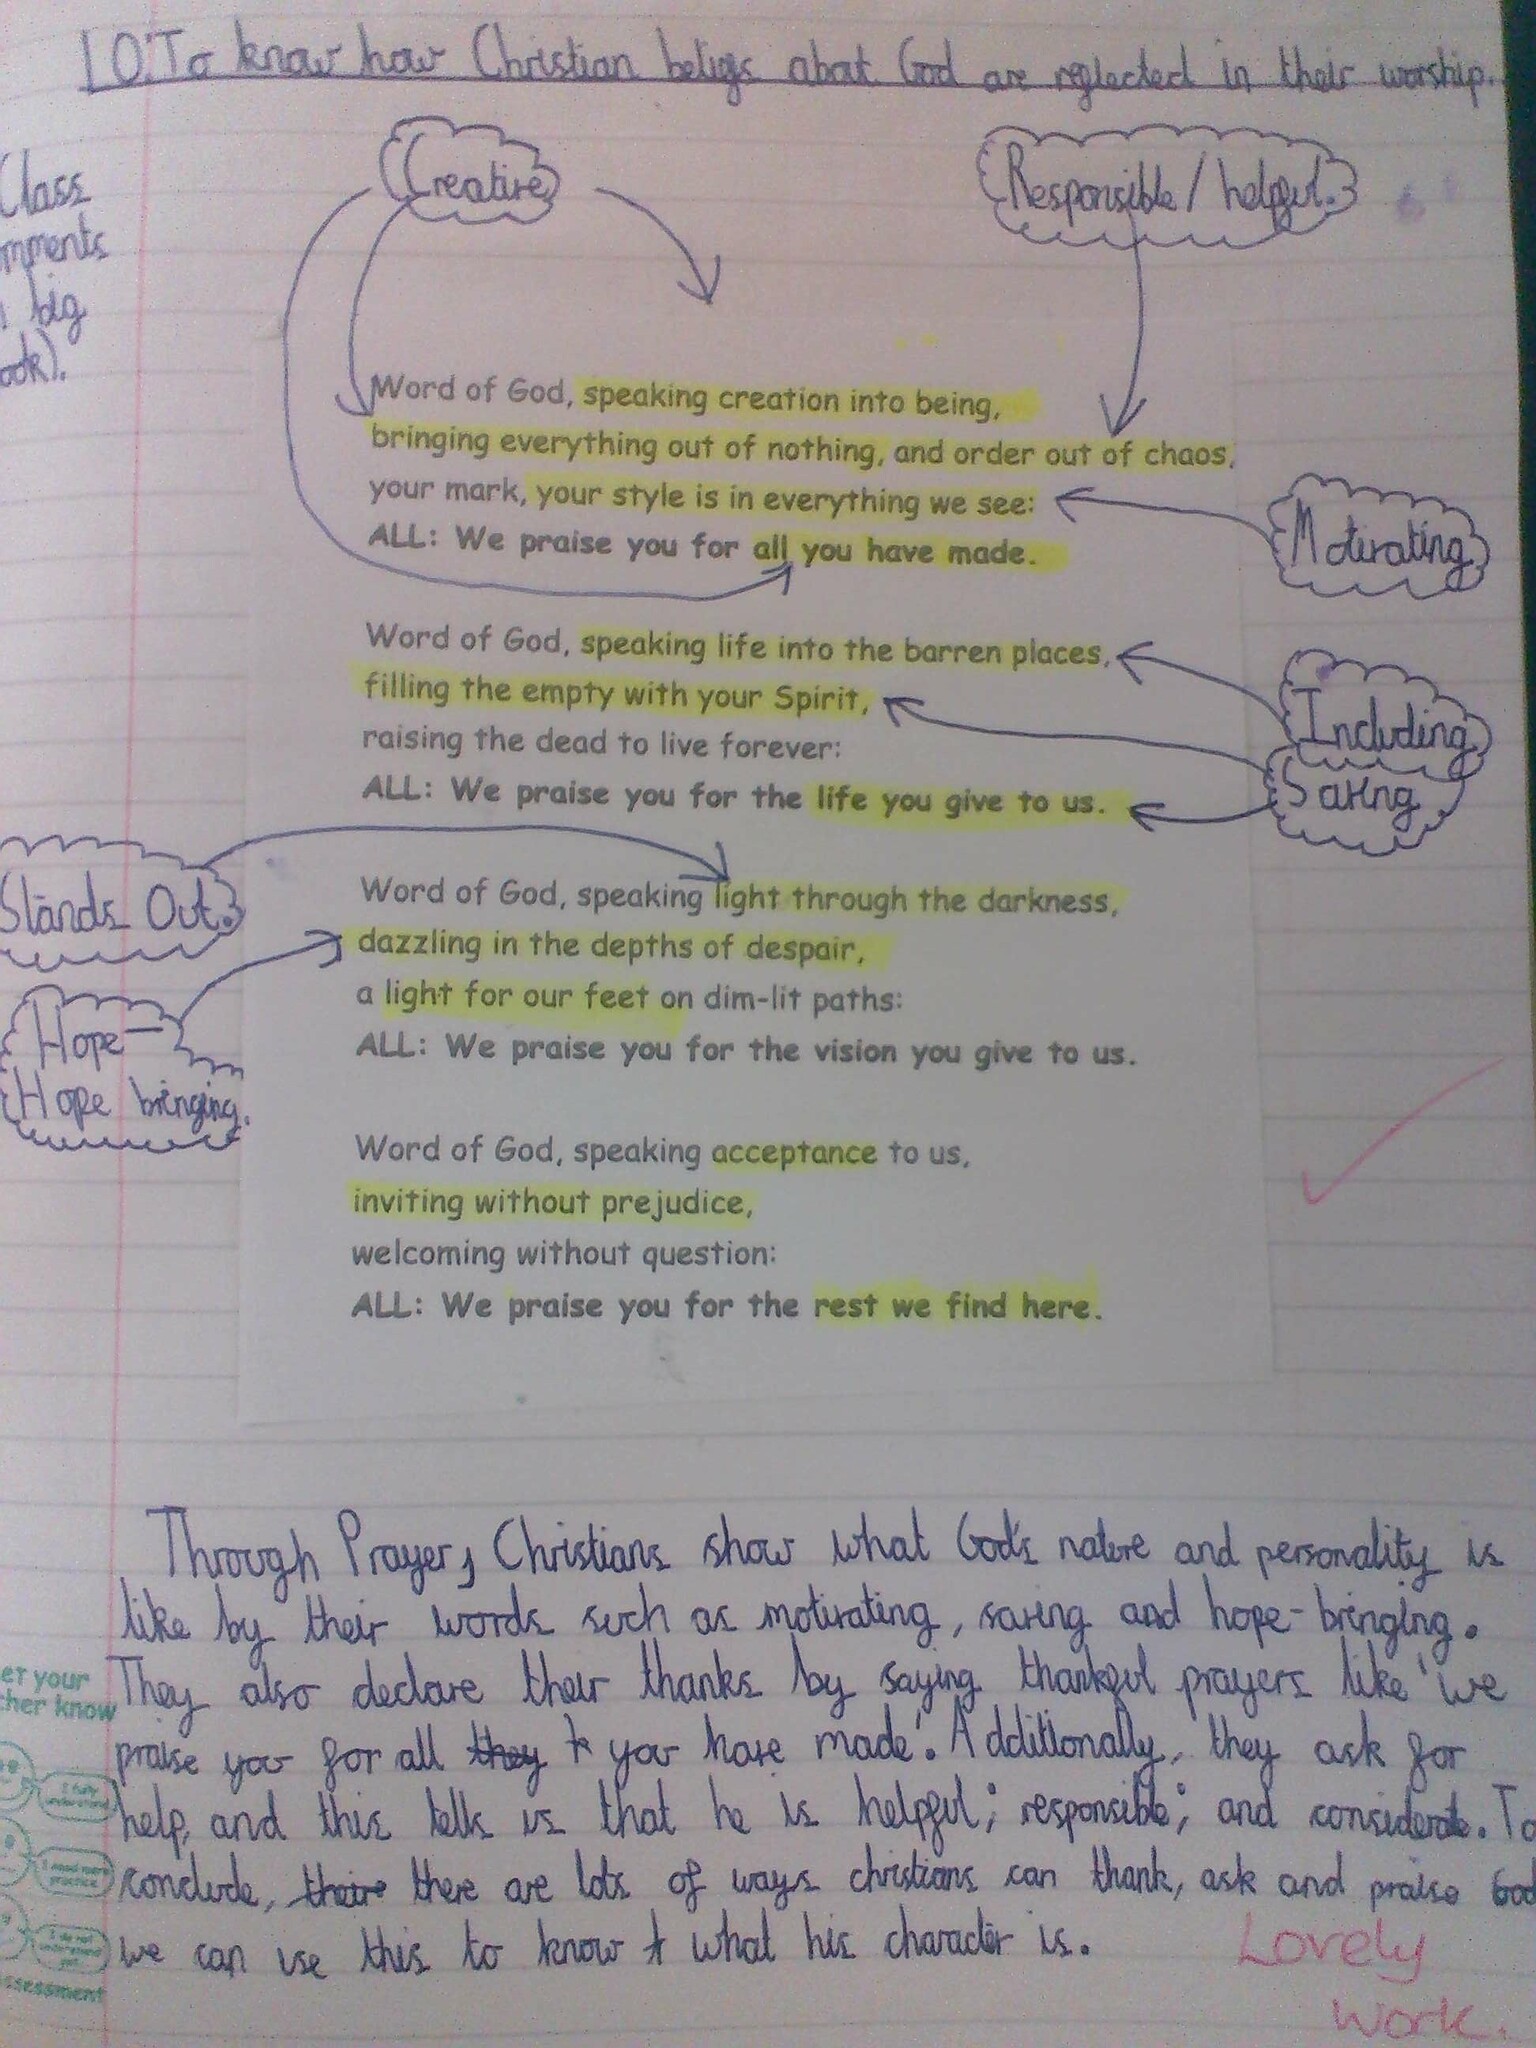 LO: To know how Christian beliefs about God are reflected in their worship.
Class
big
Creative
Responsible / helpful.
Word of God, speaking creation into being,
bringing everything out of nothing, and order out of chaos,
your mark, your style is in everything we see:
ALL: We praise you for all you have made.
Motivating
Word of God, speaking life into the barren places,
filling the empty with your Spirit,
raising the dead to live forever:
ALL: We praise you for the life you give to us.
Including
Saving
Stands Out.
Word of God, speaking light through the darkness,
dazzling in the depths of despair,
a light for our feet on dim-lit paths:
ALL: We praise you for the vision you give to us.
Hope-
Hope bringing.
Word of God, speaking acceptance to us,
inviting without prejudice,
welcoming without question:
ALL: We praise you for the rest we find here.
Through Prayer, Christians show what God's nature and personality is
like by their words such as motivating, saving and hope-bringing.
They also declare their thanks by saying thankful prayers like 'we
praise you for all they you have made'. Additionally, they ask for
help, and this tells us that he is helpful; responsible; and considerate. To
conclude, their there are lots of ways christians can thank, ask and praise God
we can use this to know what his character is.
Lovely
work.
your
know
I fully
understand
I need more
practice
I do not
understand
yet